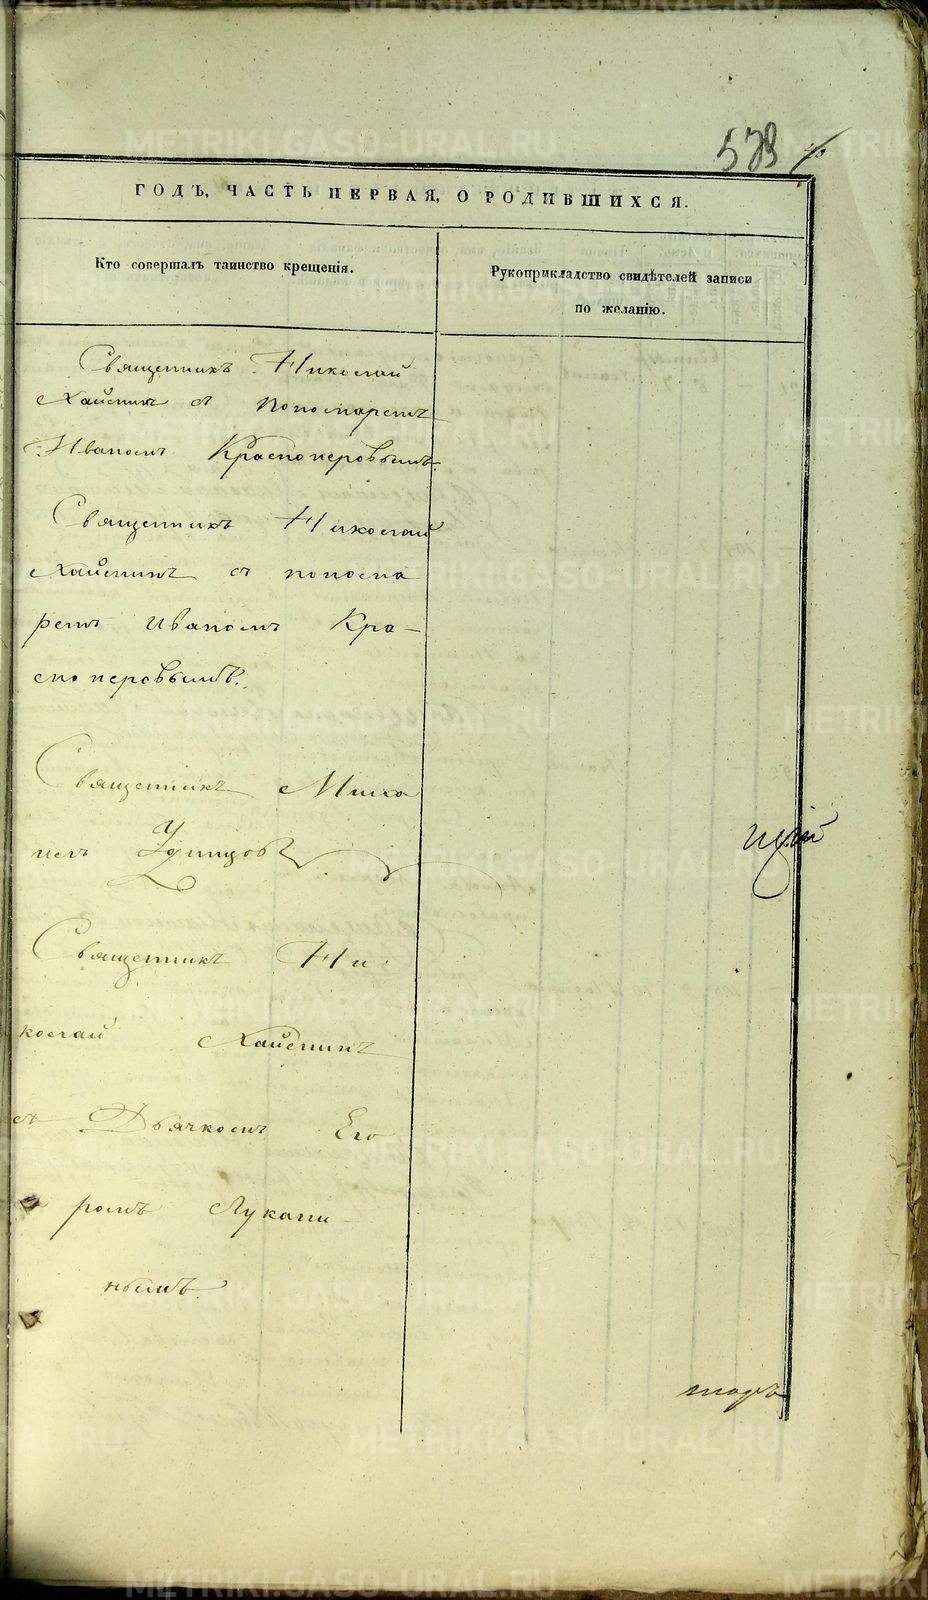 539
ГОДЪ, ЧАСТЬ ПЕРВАЯ, О РОДИВШИХСЯ.
Кто совершалъ таинство крещенія.
Рукоприкладство свидѣтелей записи
по желанію.
Священникъ Николай
Хлынинъ съ пономаремъ
Иваномъ Красноперовымъ.
Священникъ Николай
съ понома
ремъ Иваномъ Кра-
сноперовымъ.
Священникъ Миха
илъ Удинцовъ
Священникъ Ни
колай
съ Дьячкомъ Его
ромъ Лукани
нымъ.
METRIKI.GASO-URAL.RU